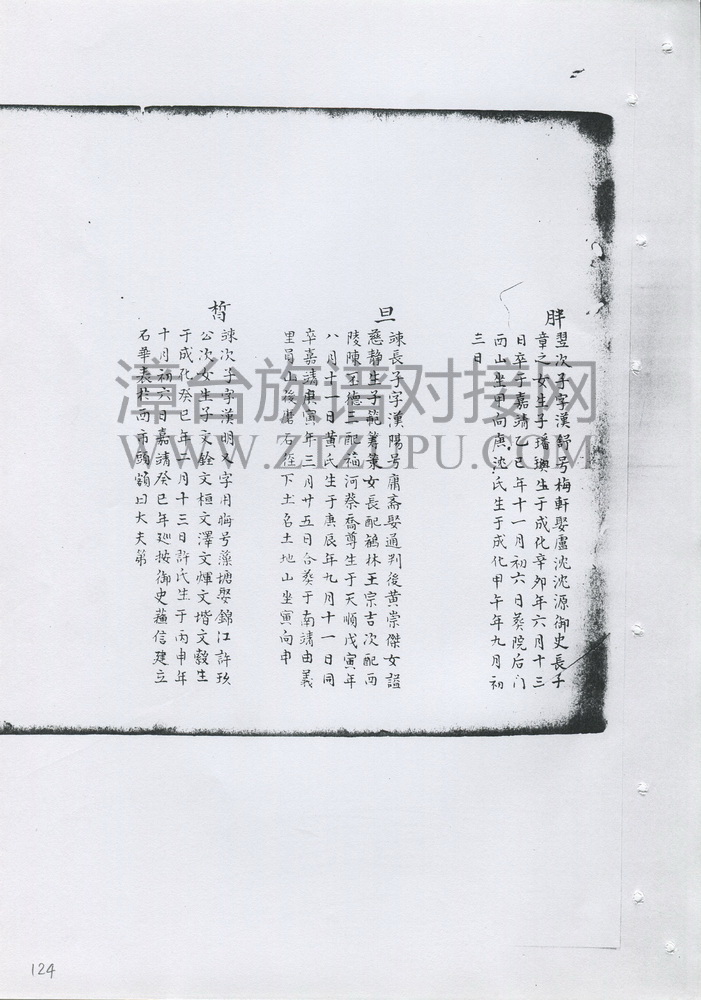 胖
翌次子字漢舒号梅軒娶盧沈沈源御史長子
章之女生子璠璵生于成化辛卯年六月十三
日卒于嘉靖乙巳年十一月初六日葬院后门
西山坐甲向庚沈氏生于成化甲午年九月初
三日
旦
諫長子字漢陽号庸斋娶通判後黄崇傑女諡
慈静生子範籌策女長配鵝林王宗吉次配西
陵陳 德三配福河蔡喬尊生于天順戊寅年
八月十一日黄氏生于庚辰年九月十一日同
卒嘉靖庚寅年三月廿五日合葬于南靖由義
里員山後磨石 下土名土地山坐寅向申
晢
諫次子字漢明又字用晦号藻塘娶錦江許玖
公次女生子文銓文桓文澤文煇文堦文毅生
于成化癸巳年二月十三日許氏生于丙申年
十月初六日嘉靖癸巳年廵按御史蘓信建立
石華表於西市頭額曰大夫第
漳台族谱对接网
WWW.ZTZUPU.COM
124